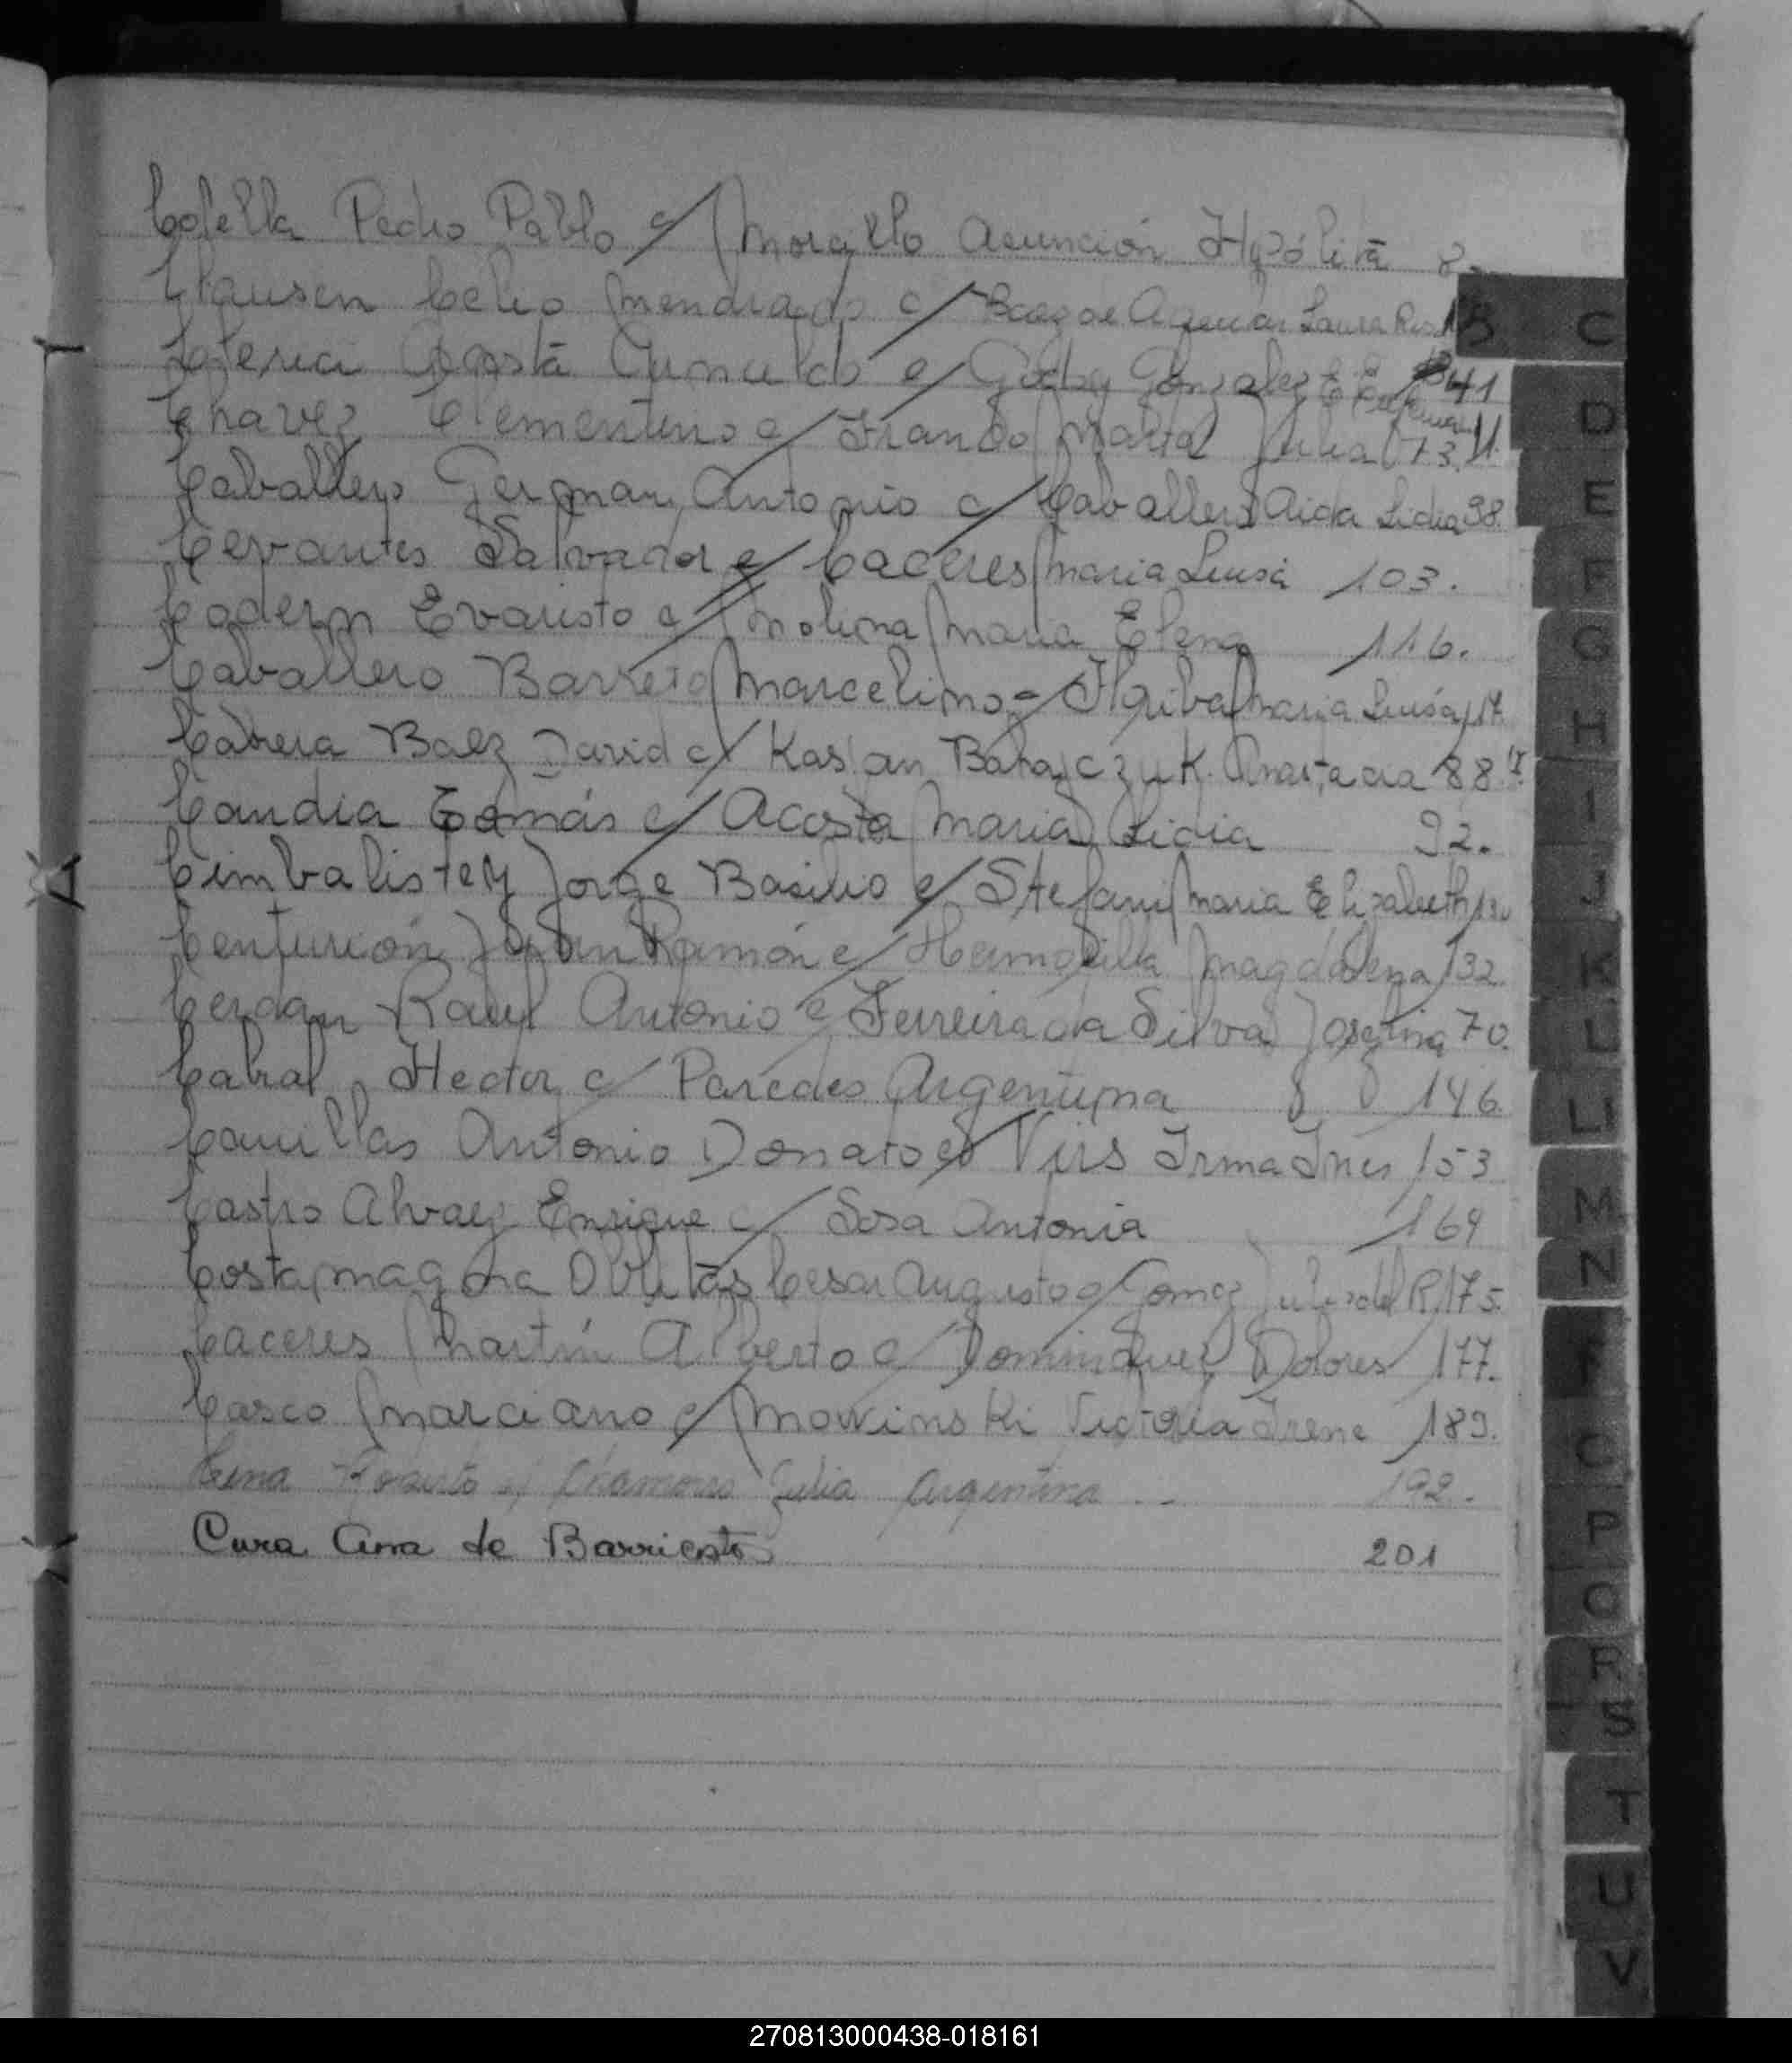 Cofella Pedro Pablo c/ Asunción Hipólita 8.
Clausen Celso c/ Baez de Laura 13
Acosta c/ Godoy Gonzalez E 41
Chavez Clementino c/ Franco Maria Julia 73.
Caballero German Antonio c/ Caballero Aida Lidia 98.
Cervantes Salvador c/ Caceres Maria Luisa 103.
Evaristo c/ Molina Maria Elena 116.
Caballero Barreto Marcelino c/ Maria Luisa 117
Cabrera Baez David c/ Anastacia 88
Candia Tomás c/ Acosta Maria Lidia 92.
Jorge Basilio c/ Stefani Maria Elizabeth
Centurión Juan Ramón c/ Hermosilla Magdalena 132
Cerdan Raul Antonio c/ Ferreira da Silva Josefina 70.
Cabral Hector c/ Paredes Argentina 146
Antonio Donato c/ Virs Irma Ines 153
Castro Alvaez Enrique c/ Sosa Antonia 169
Costamagna Cesar Augusto c/ Gomez R 175.
Caceres Martín Alberto c/ Dominguez Dolores 177.
Casco Marciano c/ Victoria Irene 189.
c/ Chamorro Julia Argentina 192.
Cura Ana de Barrientos 201
C
D
E
F
G
H
I
J
K
L
Ll
M
N
P
Q
R
S
T
U
V
270813000438-018161